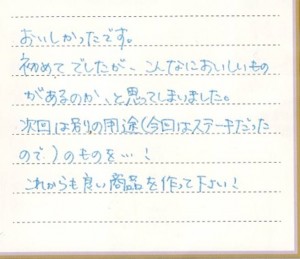 おいしかったです。
初めてでしたが、こんなにおいしいもの
があるのか、と思ってしまいました。
次回は別の用途(今回はステーキだった
ので)のものを…!
これからも良い商品を作って下さい!